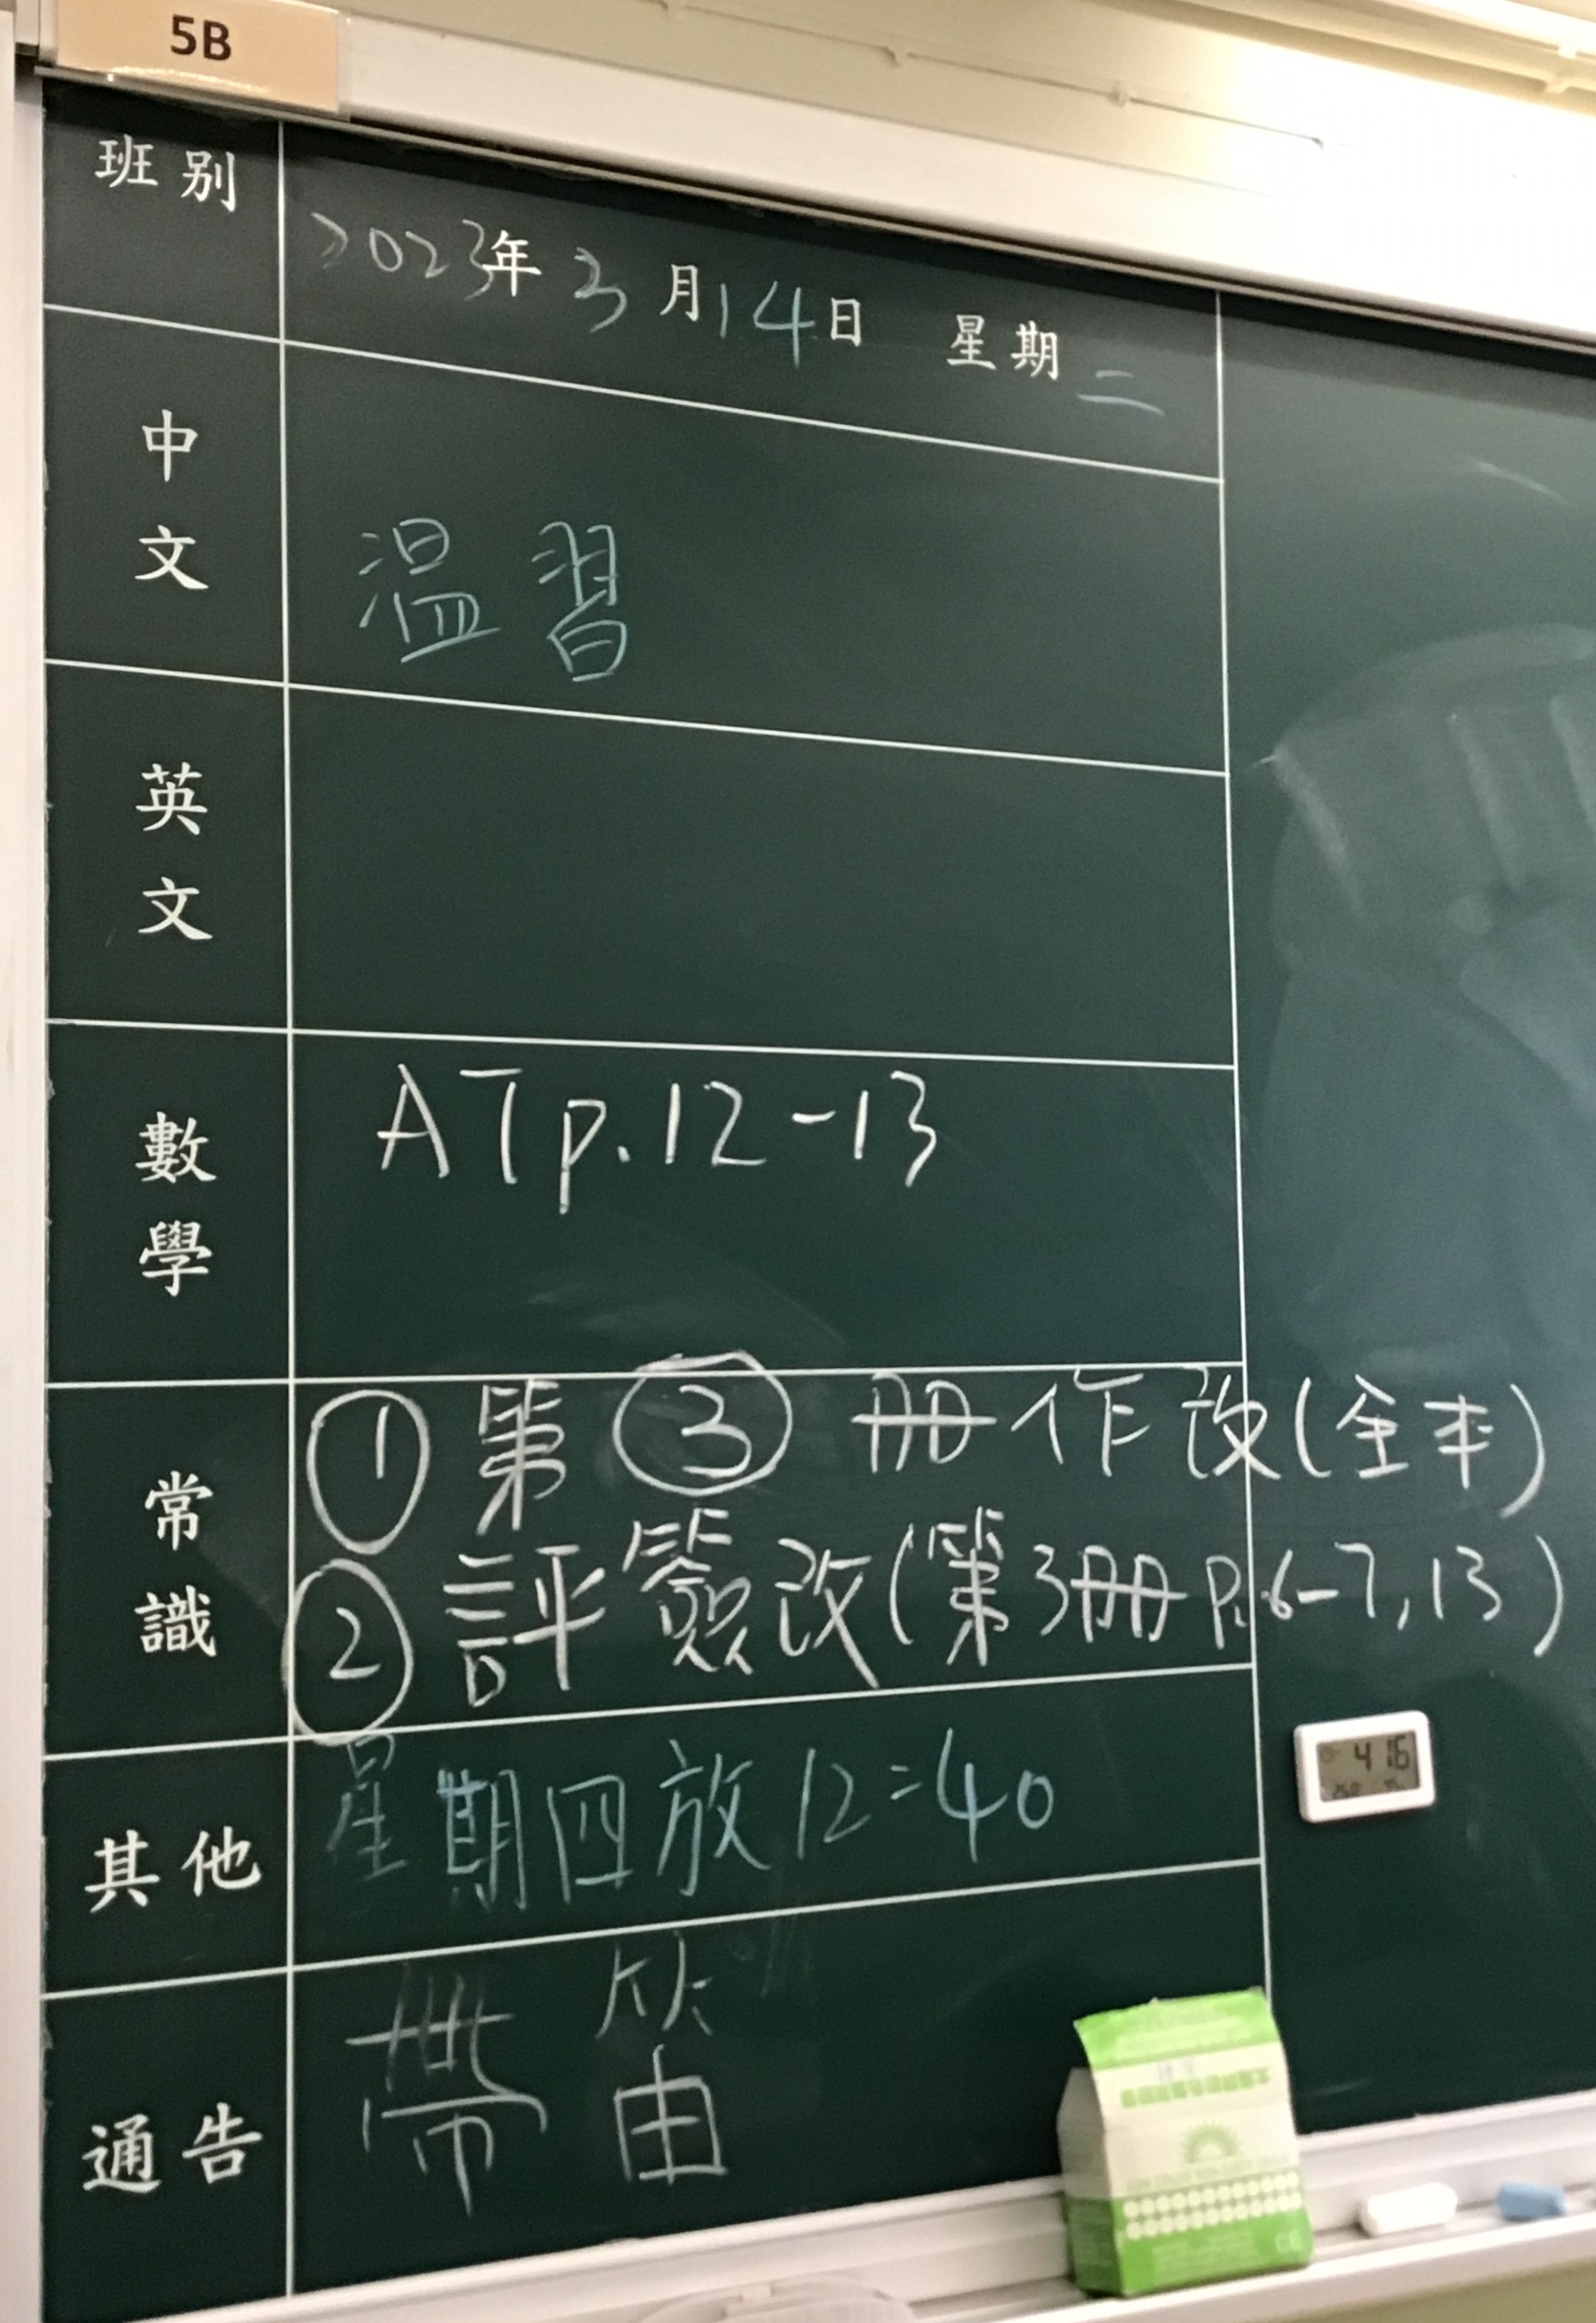 5B
班別
2023年3月14日 星期二
中文
温習
英文
數學
AT p.12-13
常識
① 第③冊作改(全本)
② 評簽改(第3冊 p.6-7, 13)
其他
星期四放12:40
通告
帶笛
4 16